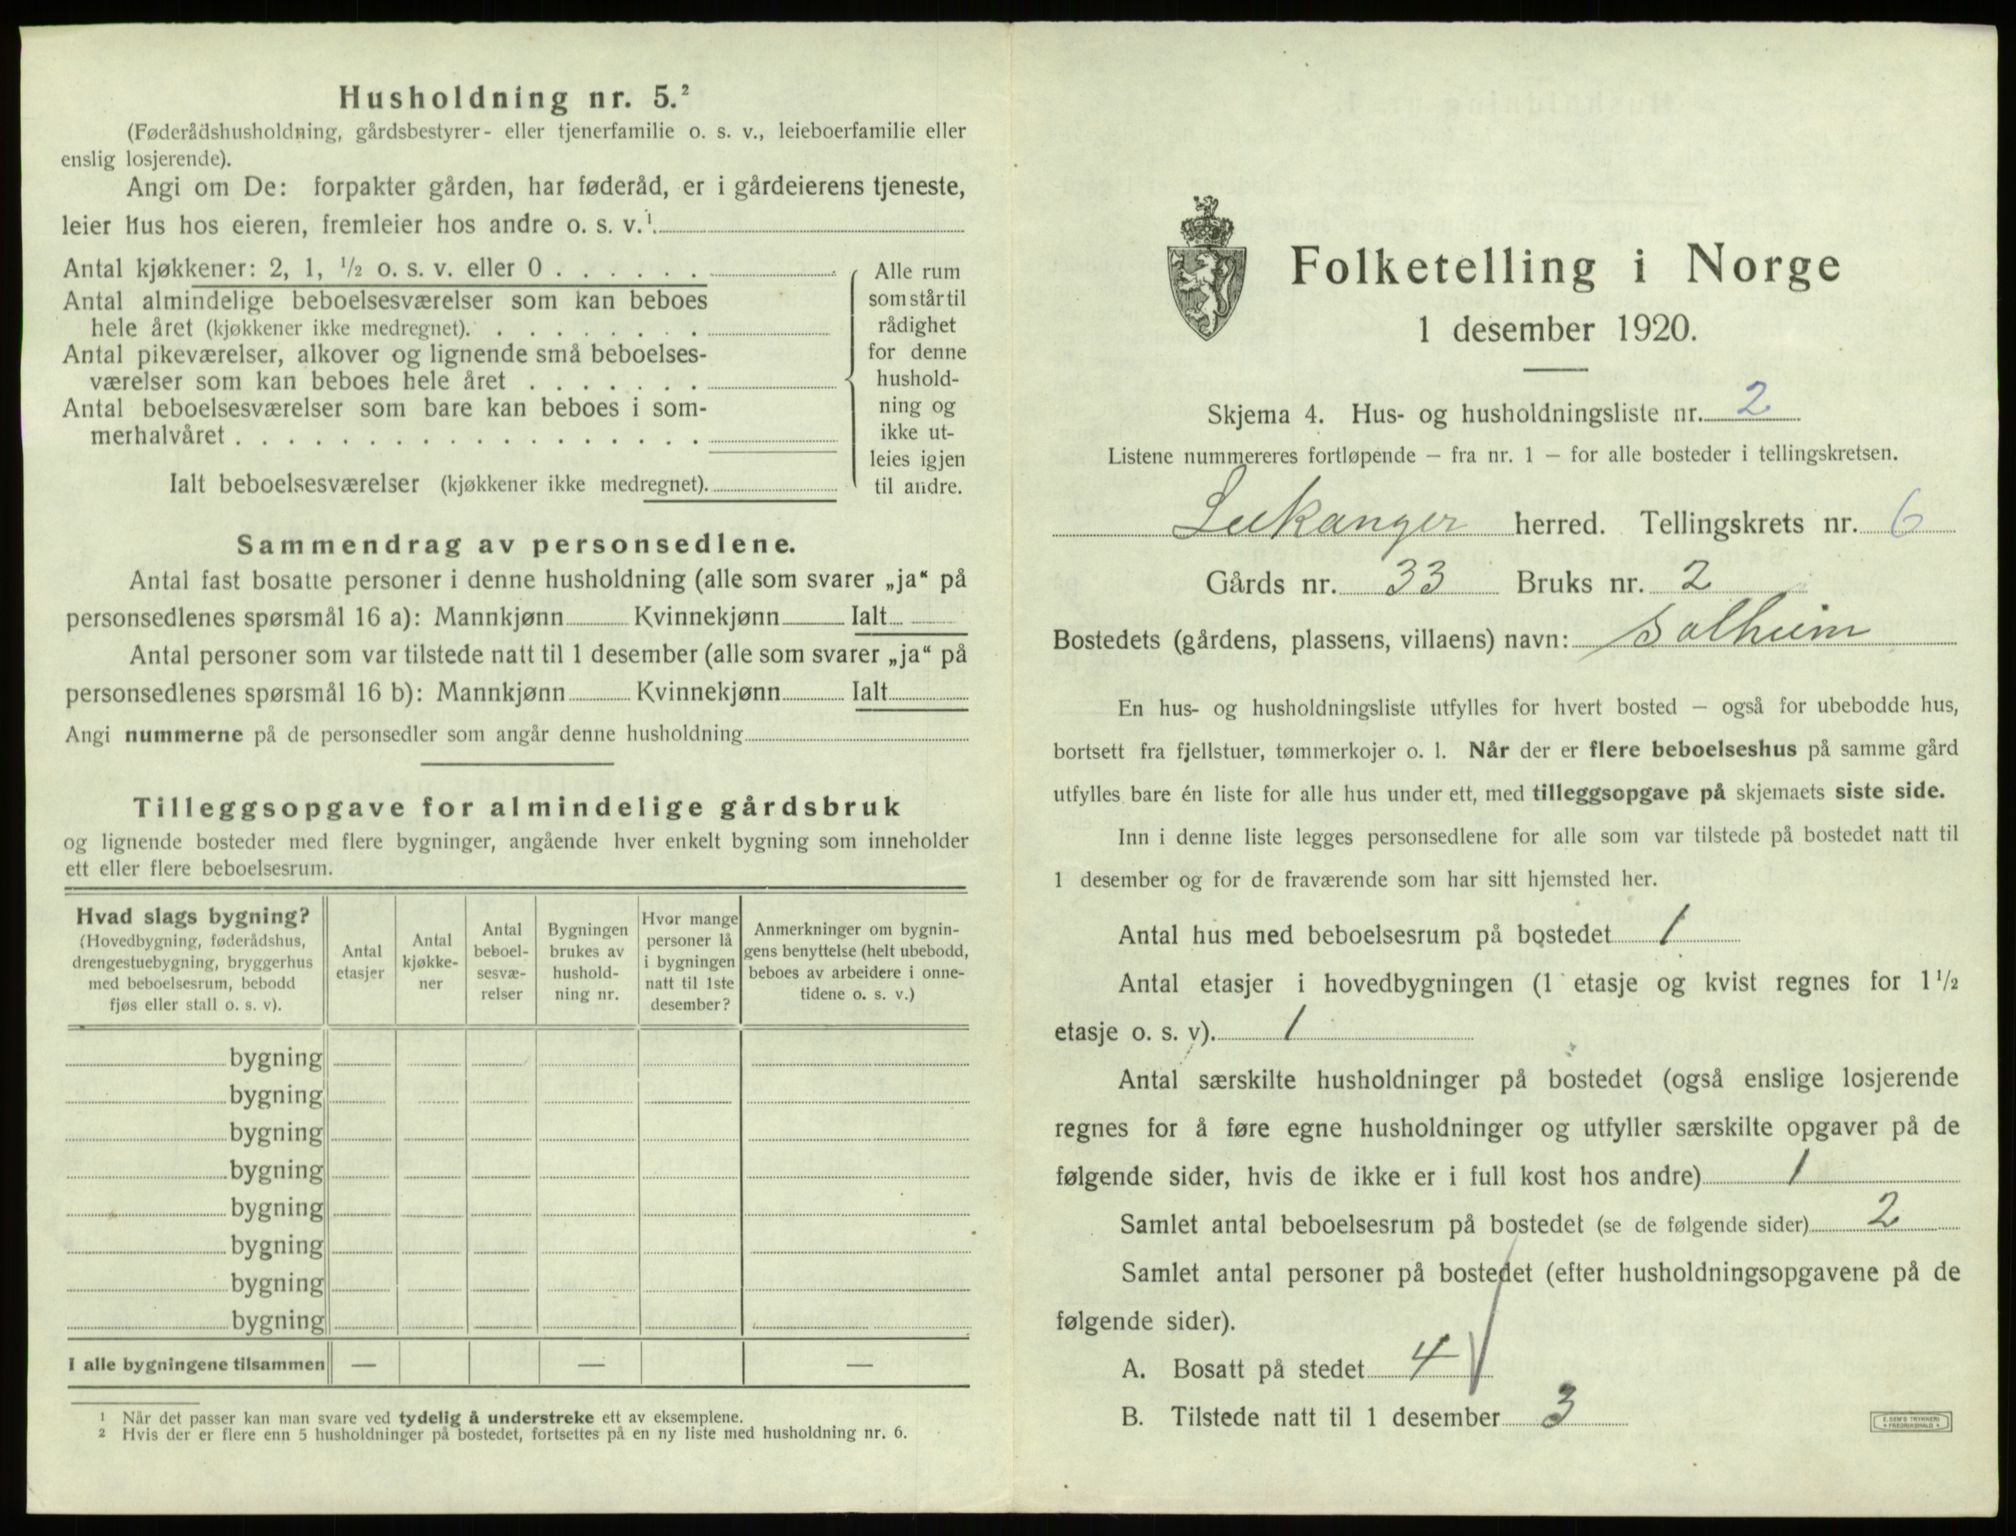 Husholdning nr. 5.²
(Føderådshusholdning, gårdsbestyrer- eller tjenerfamilie o. s. v., leieboerfamilie eller
enslig losjerende).
Angi om De: forpakter gården, har føderåd, er i gårdeierens tjeneste,
leier hus hos eieren, fremleier hos andre o. s. v.¹
Antal kjøkkener: 2, 1, ½ o. s. v. eller 0
Antal almindelige beboelsesværelser som kan beboes
hele året (kjøkkener ikke medregnet).
Antal pikeværelser, alkover og lignende små beboelses-
værelser som kan beboes hele året
Antal beboelsesværelser som bare kan beboes i som-
merhalvåret
Ialt beboelsesværelser (kjøkkener ikke medregnet).
Alle rum
som står til
rådighet
for denne
hushold-
ning og
ikke ut-
leies igjen
til andre.
Sammendrag av personsedlene.
Antal fast bosatte personer i denne husholdning (alle som svarer „ja“ på
personsedlenes spørsmål 16 a): Mannkjønn Kvinnekjønn Ialt
Antal personer som var tilstede natt til 1 desember (alle som svarer „ja“ på
personsedlenes spørsmål 16 b): Mannkjønn Kvinnekjønn Ialt
Angi nummerne på de personsedler som angår denne husholdning
Tilleggsopgave for almindelige gårdsbruk
og lignende bosteder med flere bygninger, angående hver enkelt bygning som inneholder
ett eller flere beboelsesrum.
Hvad slags bygning?
(Hovedbygning, føderådshus,
drengestuebygning, bryggerhus
med beboelsesrum, bebodd
fjøs eller stall o. s. v).
Antal
etasjer
Antal
kjøkke-
ner
Antal
beboel-
sesvæ-
relser
Bygningen
brukes av
hushold-
ning nr.
Hvor mange
personer lå
i bygningen
natt til 1ste
desember?
Anmerkninger om bygnin-
gens benyttelse (helt ubebodd,
beboes av arbeidere i onne-
tidene o. s. v.)
bygning
bygning
bygning
bygning
bygning
bygning
bygning
bygning
I alle bygningene tilsammen — — —
¹ Når det passer kan man svare ved tydelig å understreke ett av eksemplene.
² Hvis der er flere enn 5 husholdninger på bostedet, fortsettes på en ny liste med husholdning nr. 6.
Folketelling i Norge
1 desember 1920.
Skjema 4. Hus- og husholdningsliste nr. 2
Listene nummereres fortløpende – fra nr. 1 – for alle bosteder i tellingskretsen.
Leikanger herred. Tellingskrets nr. 6
Gårds nr. 33 Bruks nr. 2
Bostedets (gårdens, plassens, villaens) navn: Solheim
En hus- og husholdningsliste utfylles for hvert bosted – også for ubebodde hus,
bortsett fra fjellstuer, tømmerkojer o. l. Når der er flere beboelseshus på samme gård
utfylles bare én liste for alle hus under ett, med tilleggsopgave på skjemaets siste side.
Inn i denne liste legges personsedlene for alle som var tilstede på bostedet natt til
1 desember og for de fraværende som har sitt hjemsted her.
Antal hus med beboelsesrum på bostedet 1
Antal etasjer i hovedbygningen (1 etasje og kvist regnes for 1½
etasje o. s. v). 1
Antal særskilte husholdninger på bostedet (også enslige losjerende
regnes for å føre egne husholdninger og utfyller særskilte opgaver på de
følgende sider, hvis de ikke er i full kost hos andre) 1
Samlet antal beboelsesrum på bostedet (se de følgende sider) 2
Samlet antal personer på bostedet (efter husholdningsopgavene på de
følgende sider).
A. Bosatt på stedet 4
B. Tilstede natt til 1 desember 3
E. SEM'S TRYKKERI
FREDRIKSHALD